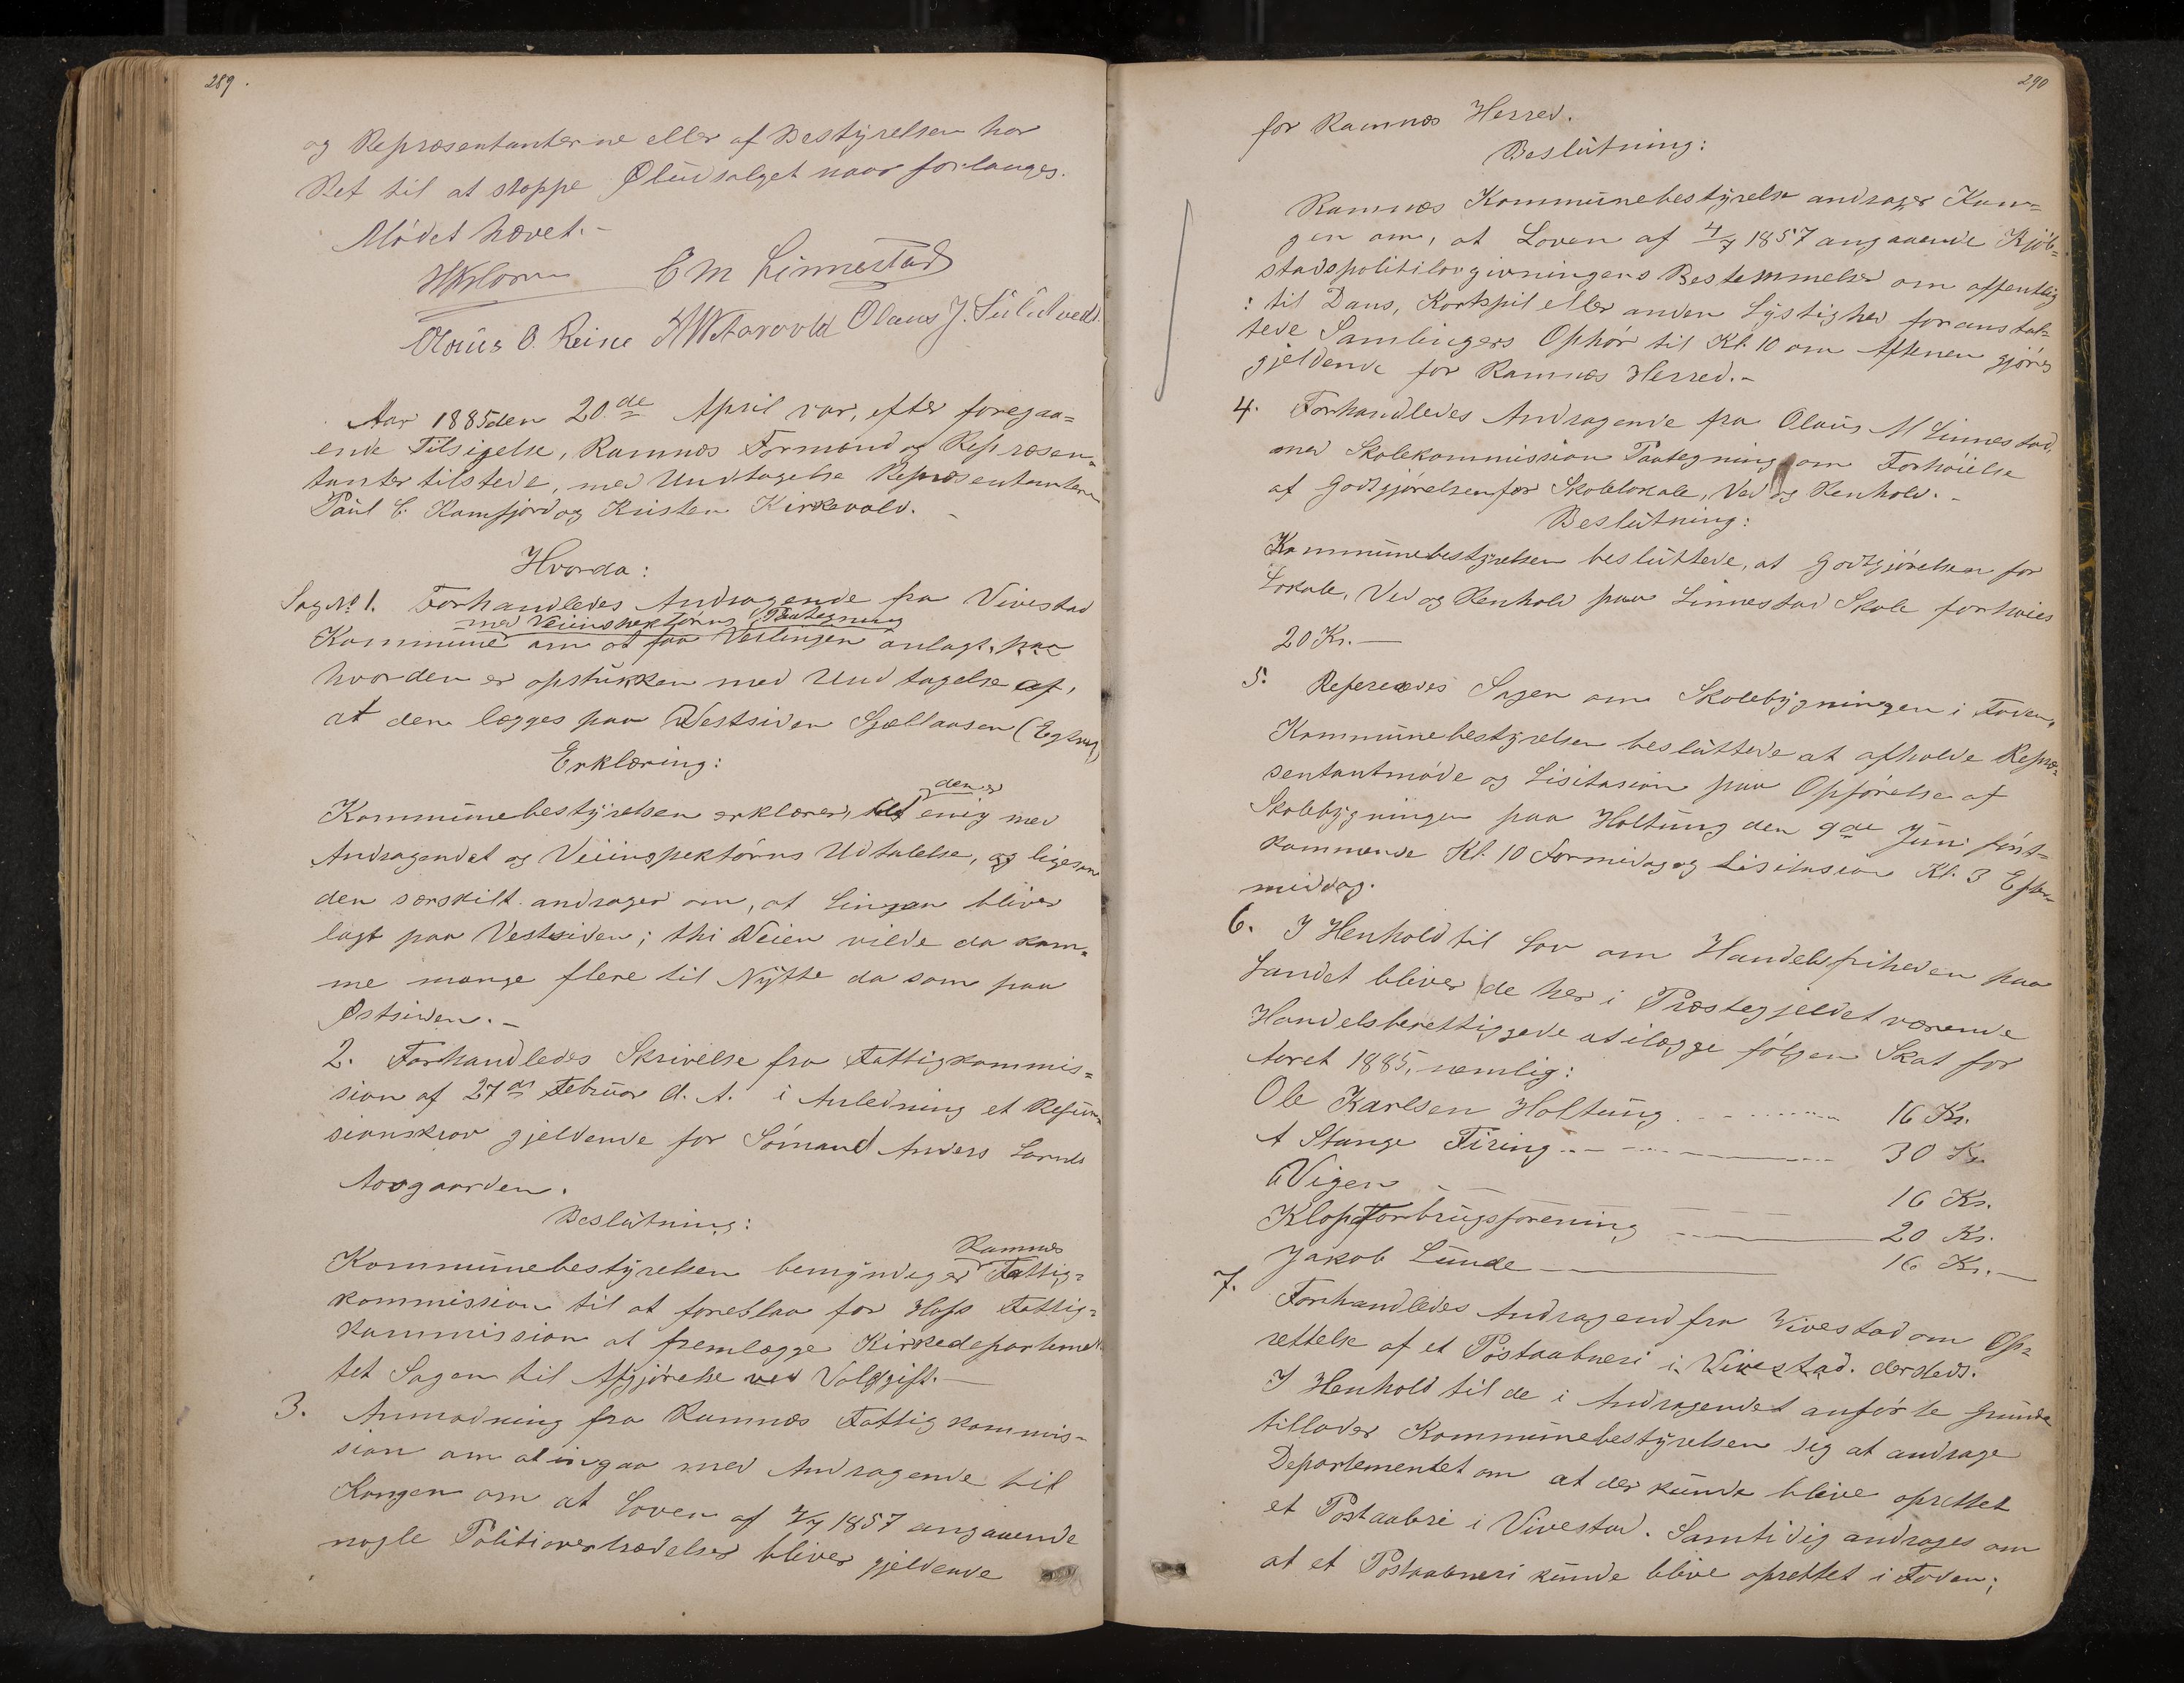 289.
og Repræsentanterne eller af Bestyrelsen har
Ret til at stoppe Øludsalget naar forlanges.
Mödet hævet.-
C M Linnestad
Olaus O. Reine Olaus J.
Aar 1885 den 20de April var, efter foregaa=
ende Tilsigelse, Ramnæs Formænd og Repræsen=
tanter tilstede, med Undtagelse Repræsentanterne
Paul C. Ramfjord og Kristen Kirkevold. -
Hvorda:
Sag No 1. Forhandledes Andragende fra Vivestad
med Veiinspektörns Paategning
Kommune om at faa Veilinjen anlagt,
hvor den er opstukken med Undtagelse af,
at den lægges paa Vestsiden
Erklæring:
den er
Kommunebestyrelsen erklærer, enig med
Andragendet og Veiinspektörns Udtalelse, og ligesom
den særskilt andrager om, at Linjen bliver
lagt paa Vestsiden; thi Veien vilde da kom=
me mange flere til Nytte da som paa
Østsiden. -
2. Forhandledes Skrivelse fra Fattigkommis=
sion af 27de Februar d. A. i Anledning et Refun=
sionskrav gjeldende for Sömand Anders
Aasgaarden.
Beslutning:
Ramnæs
Kommunebestyrelsen bemyndiger Fattig=
kommission til at foreslaa for Hofs Fattig=
kommission at fremlægge Kirkedepartemen=
tet Sagen til Afgjörelse ved Voldgift. -
3. Anmodning fra Ramnæs Fattigkommis=
sion om at ingaa med Andragende til
Kongen om at Loven af 4/7 1857 angaaende
nogle Politiovertrædelser bliver gjeldende
290
for Ramnæs Herred.
Beslutning:
Ramnæs Kommunebestyrelse andrager Kon=
gen om, at Loven af 4/7 1857 angaaende Kjöb=
stadspolitilovgivningens Bestemmelser om offentlig
: til Dans, Kortspil eller anden Lystighed foranstal=
tede Samlingers Ophör til Kl. 10 om Aftenen gjöres
gjeldende for Ramnæs Herred. -
4. Forhandledes Andragende fra Olaus M Linnestad,
med Skolekommission Paategning om Forhöielse
af Godtgjörelsen for Skolelokale, Ved og Renhold. -
Beslutning:
Kommunebestyrelsen besluttede, at Godtgjörelsen for
Lokale, Ved og Renhold paa Linnestad Skole forhöies
20 Kr. -
5. Refereredes Sagen om Skolebygningen i Foden.
Kommunebestyrelsen besluttede at afholde Repræ=
sentantmöde og Lisitasion paa Opförelse af
Skolebygningen paa Holtung den 9de Juni först=
kommende Kl. 10 Formidag og Lisitasion Kl. 3 Efter=
middag.
6. I Henhold til Lov om Handelsfriheden paa
Landet bliver de her i Præstegjeldet værende
Handelsberettiggede at ilægge fölgen Skat for
Aaret 1885, nemlig:
Ole Karlsen Holtung 16 Kr.
A Stange Firing 30 Kr.
Vigen 16 Kr.
Klopp Forbrugsforening 20 Kr.
Jakob Lunde 16 Kr. -
7. Forhandledes Andragend fra Vivestad om Op=
rettelse af et Postaabneri i Vivestad. dersteds.
I Henhold til de i Andragendet anförte Grunde
tillader Kommunebestyrelsen sig at andrage
Departementet om at der kunde blive oprettet
et Postaabneri i Vivestad. Samtidig andrages om
at et Postaabneri kunde blive oprettet i Foden;